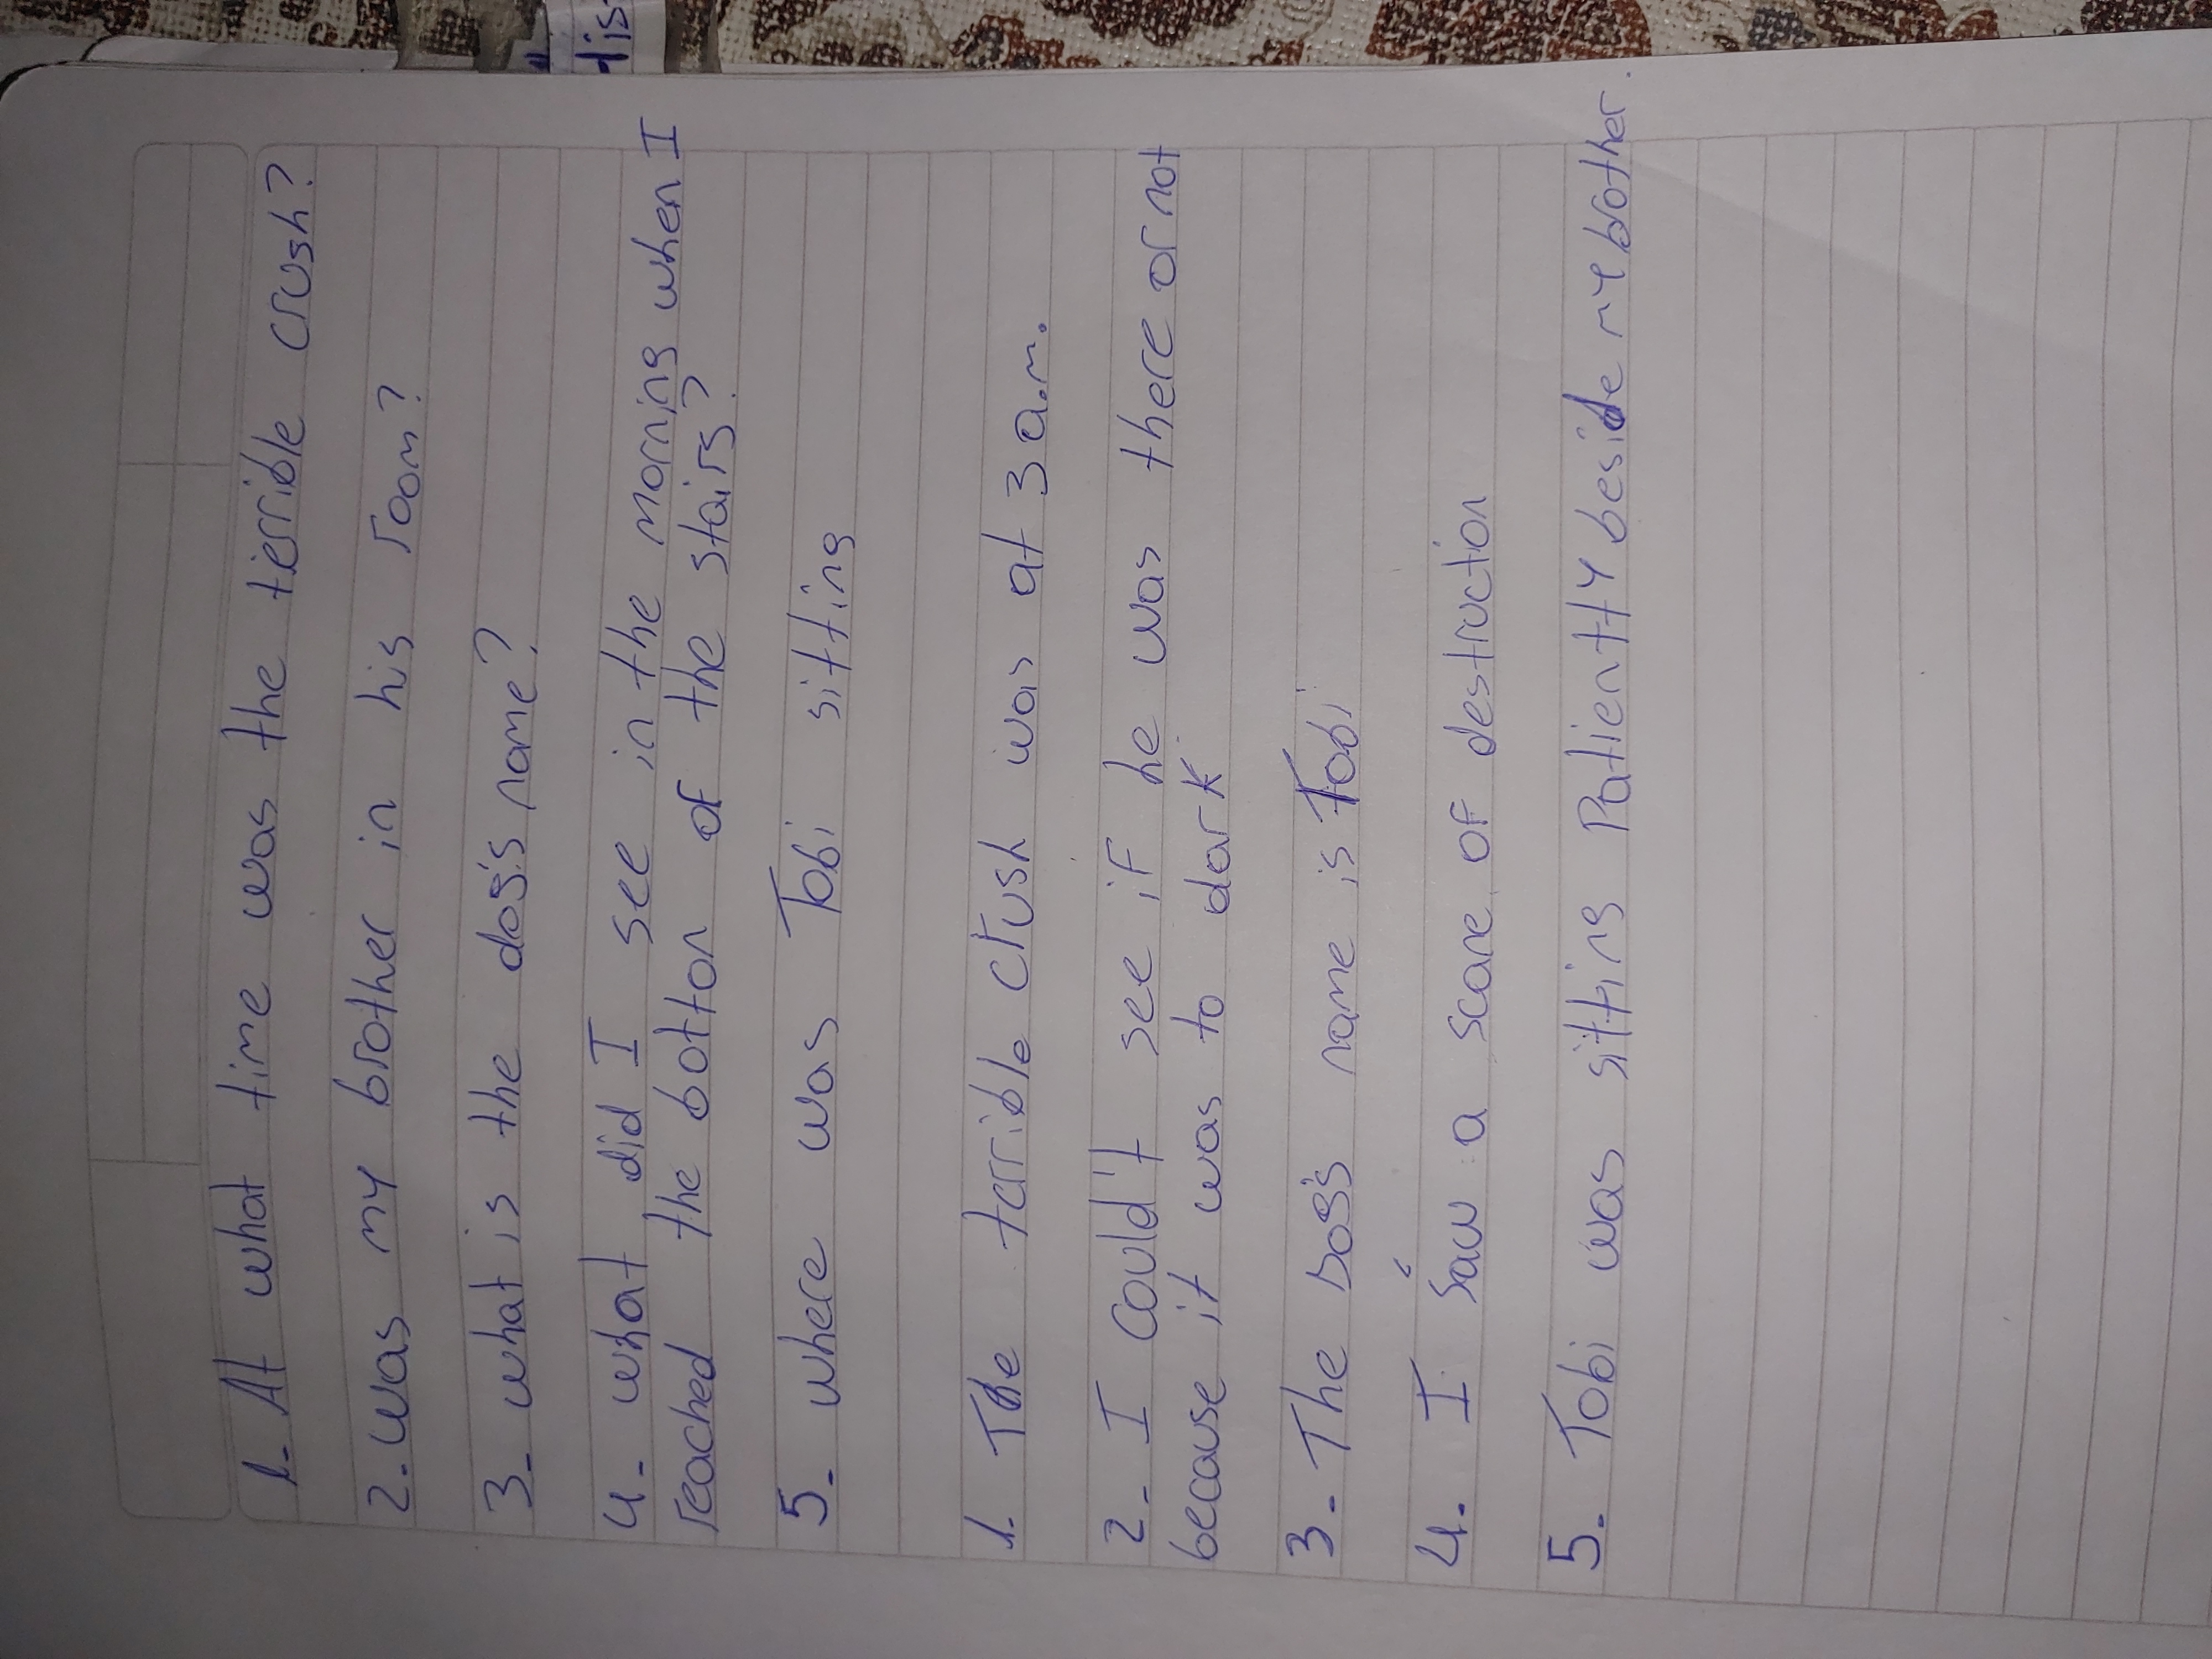 1- At what time was the terrible crush?
2- was my brother in his room?
3- what is the dog's name?
4- what did I see in the morning when I
reached the botton of the stairs?
5- where was Tobi sitting
1- The terrible crush was at 3 a.m.
2- I could't see if he was there or not
because it was to dark
3- The Dog's name is Tobi
4- I saw a scane of destruction
5- Tobi was sitting Patiently beside my brother.
dis-